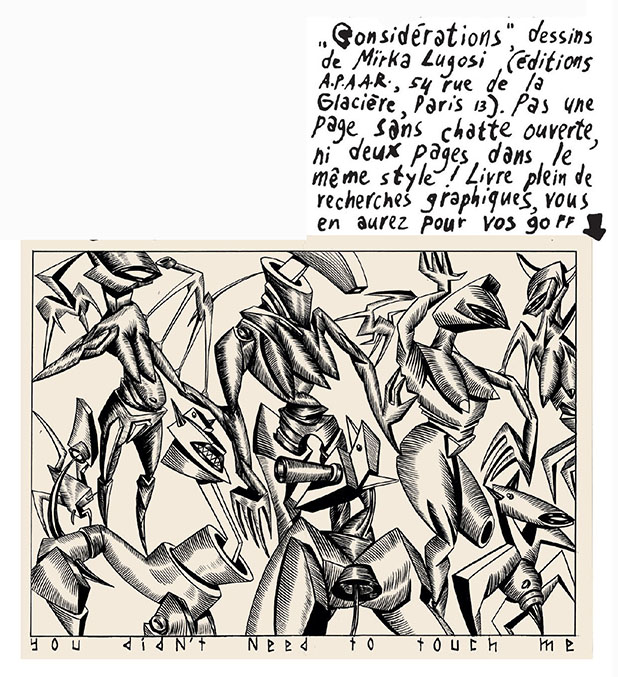 „Considérations", dessins
de Mïrka Lugosi (éditions
A.P.A.A.R., 54 rue de la
Glacière, Paris 13). Pas une
page sans chatte ouverte,
ni deux pages dans le
même style ! Livre plein de
recherches graphiques, vous
en aurez pour vos 90 FF
you didn't need to touch me